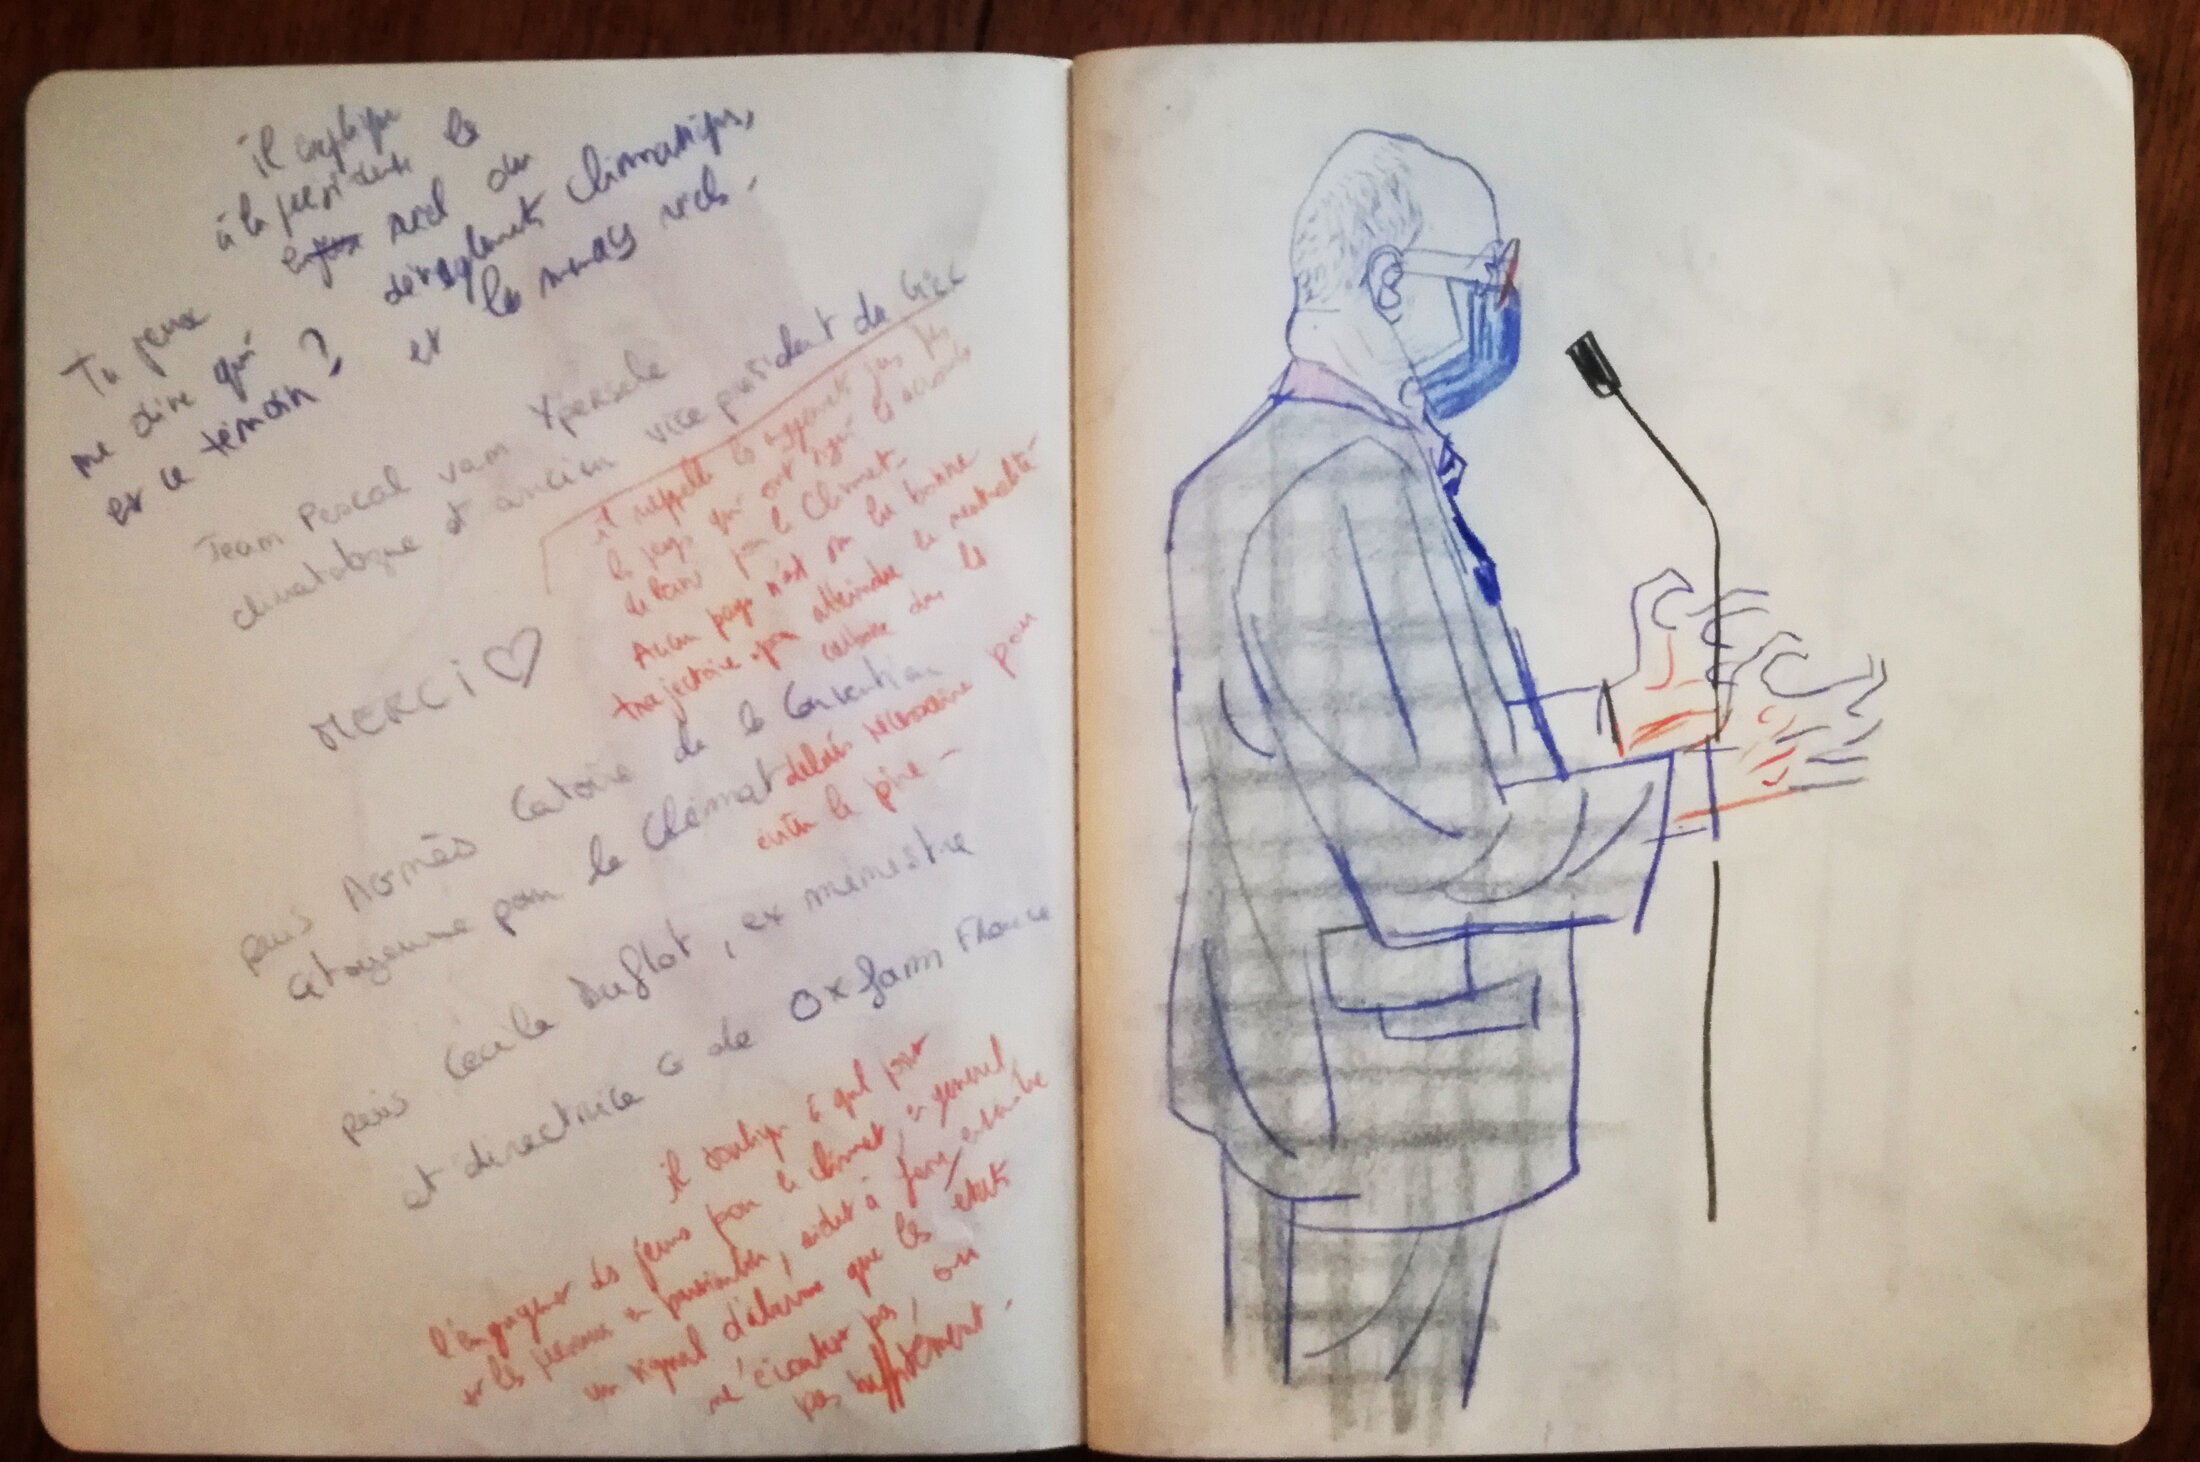 il explique
à la présidente le
réel du
dérèglements climatiques,
et les rués
Tu peux
me dire qui
est ce témoin ?
Jean Pascal van Ypersele
climatologue et ancien vice président du Giec
MERCI ♡
il rappelle les
les pays qui ont signé les accords
de Paris pour le Climat.
Aucun pays n'est sur la bonne
trajectoire pour atteindre la neutralité
carbone dans les
délais nécessaires pour
éviter le pire -
puis Agnès Catoire de la Convention
citoyenne pour le Climat
puis Cécile Duflot, ex ministre
et directrice G de Oxfam France
il souligne à quel point
l'engagement des jeunes pour le climat, en général
et les personnes en particulier, aident à faire entendre
un signal d'alarme que les états
n'écoutent pas, ou
pas suffisamment -